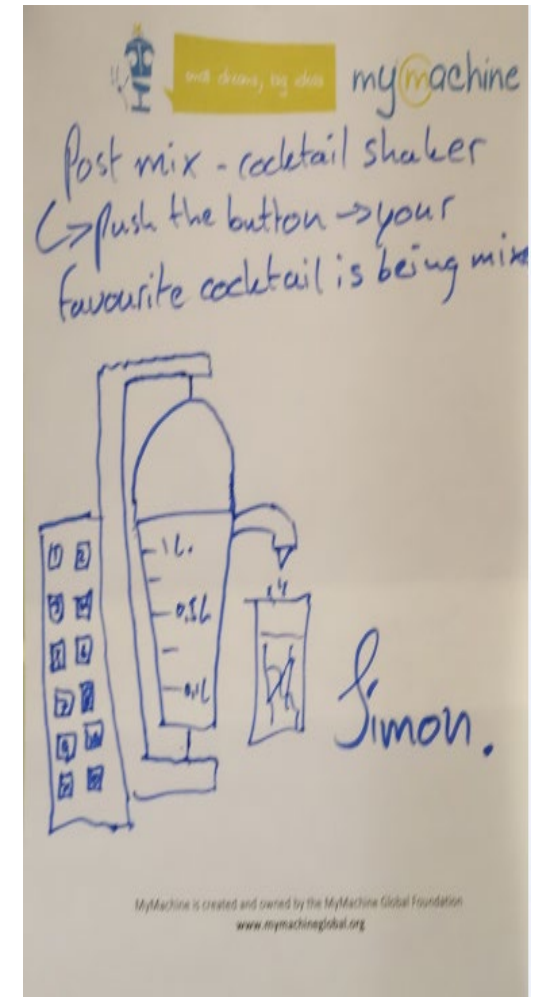 my machine
Post mix - cocktail shaker
↳ push the button → your
favourite cocktail is being
1 L.
0,5L
0,1L
1 2
Simon.
MyMachine is created and owned by the MyMachine Global Foundation
www.mymachineglobal.org